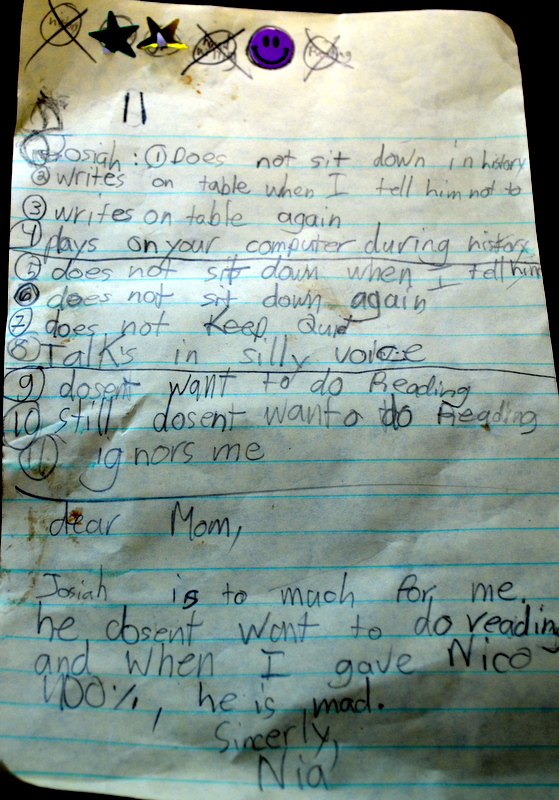 11
Josiah: ① Does not sit down in history
② writes on table when I tell him not to
③ writes on table again
④ plays on your computer during history
⑤ does not sit down when I tell him
⑥ does not sit down again
⑦ does not Keep Quit
⑧ Talks in silly voice
⑨ dosent want to do Reading
⑩ still dosent want to do Reading
⑪ ignors me
dear Mom,
Josiah is to much for me.
he dosent want to do reading
and when I gave Nico
400%, he is mad.
Sincerly,
Nia